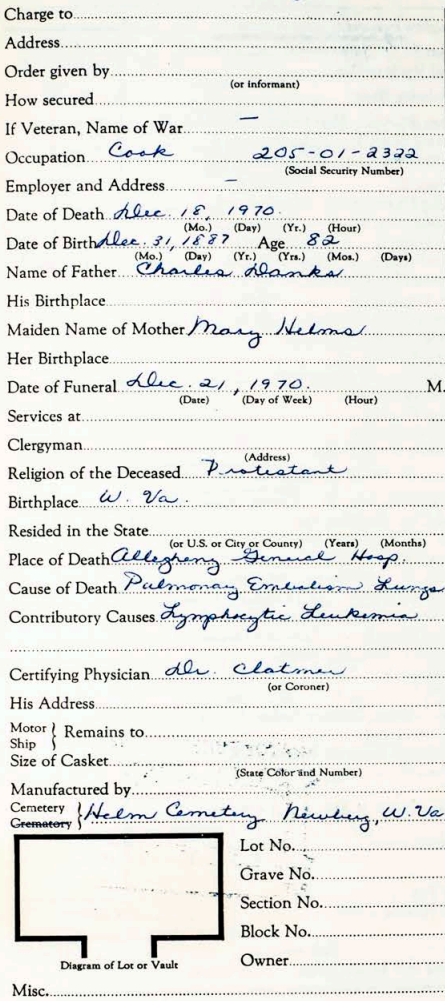 Charge to
Address
Order given by
(or informant)
How secured
If Veteran, Name of War —
Occupation Cook 205-01-2322
(Social Security Number)
Employer and Address –
Date of Death Dec. 18, 1970.
(Mo.) (Day) (Yr.) (Hour)
Date of Birth Dec. 31, 1887 Age 82
(Mo.) (Day) (Yr.) (Yrs.) (Mos.) (Days)
Name of Father Charles Danks
His Birthplace
Maiden Name of Mother Mary Helms
Her Birthplace
Date of Funeral Dec. 21, 1970. M.
(Date) (Day of Week) (Hour)
Services at
Clergyman
(Address)
Religion of the Deceased Protestant
Birthplace W. Va.
Resided in the State
(or U.S. or City or County) (Years) (Months)
Place of Death Allegheny General Hosp.
Cause of Death Pulmonary Embalism Lungs
Contributory Causes Lymphocytic Leukemia
Certifying Physician Dr.
(or Coroner)
His Address
Motor
Ship } Remains to
Size of Casket
(State Color and Number)
Manufactured by
Cemetery
Crematory } Helm Cemetery Newburg, W. Va
Lot No.
Grave No.
Section No.
Block No.
Owner
Diagram of Lot or Vault
Misc.